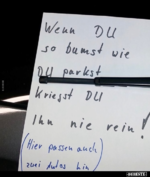 Wenn DU
so bumst wie
DU parkst
kriegst DU
Ihn nie rein!
(Hier passen auch)
zwei Autos hin